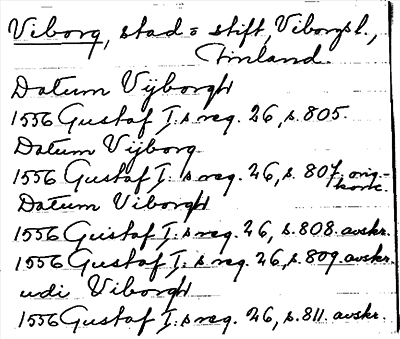 Viborg, stad = stift, Viborgsl.,
Finland.
Datum Vijborgh
1556 Gustaf I:s reg. 26, s. 805.
Datum Vijborg
1556 Gustaf I:s reg. 26, s. 807, orig.-
konc.
Datum Viborgh
1556 Gustaf I:s reg. 26, s. 808. avskr.
1556 Gustaf I:s reg. 26, s. 809. avskr.
udi Viborgh
1556 Gustaf I:s reg. 26, s. 811. avskr.